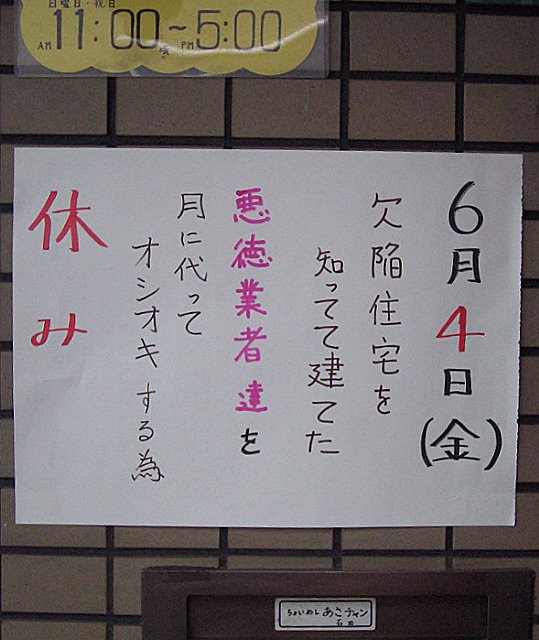 日曜日・祝日
AM 11:00～PM 5:00
頃
6月4日(金)
欠陥住宅を
知ってて建てた
悪徳業者達を
月に代って
オシオキする為
休み
ちょいめし あさチャン